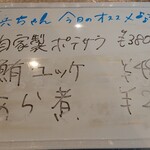 ちゃん 今日のオススメ
自家製ポテサラ ¥380
鮪ユッケ ¥
あら煮 ¥